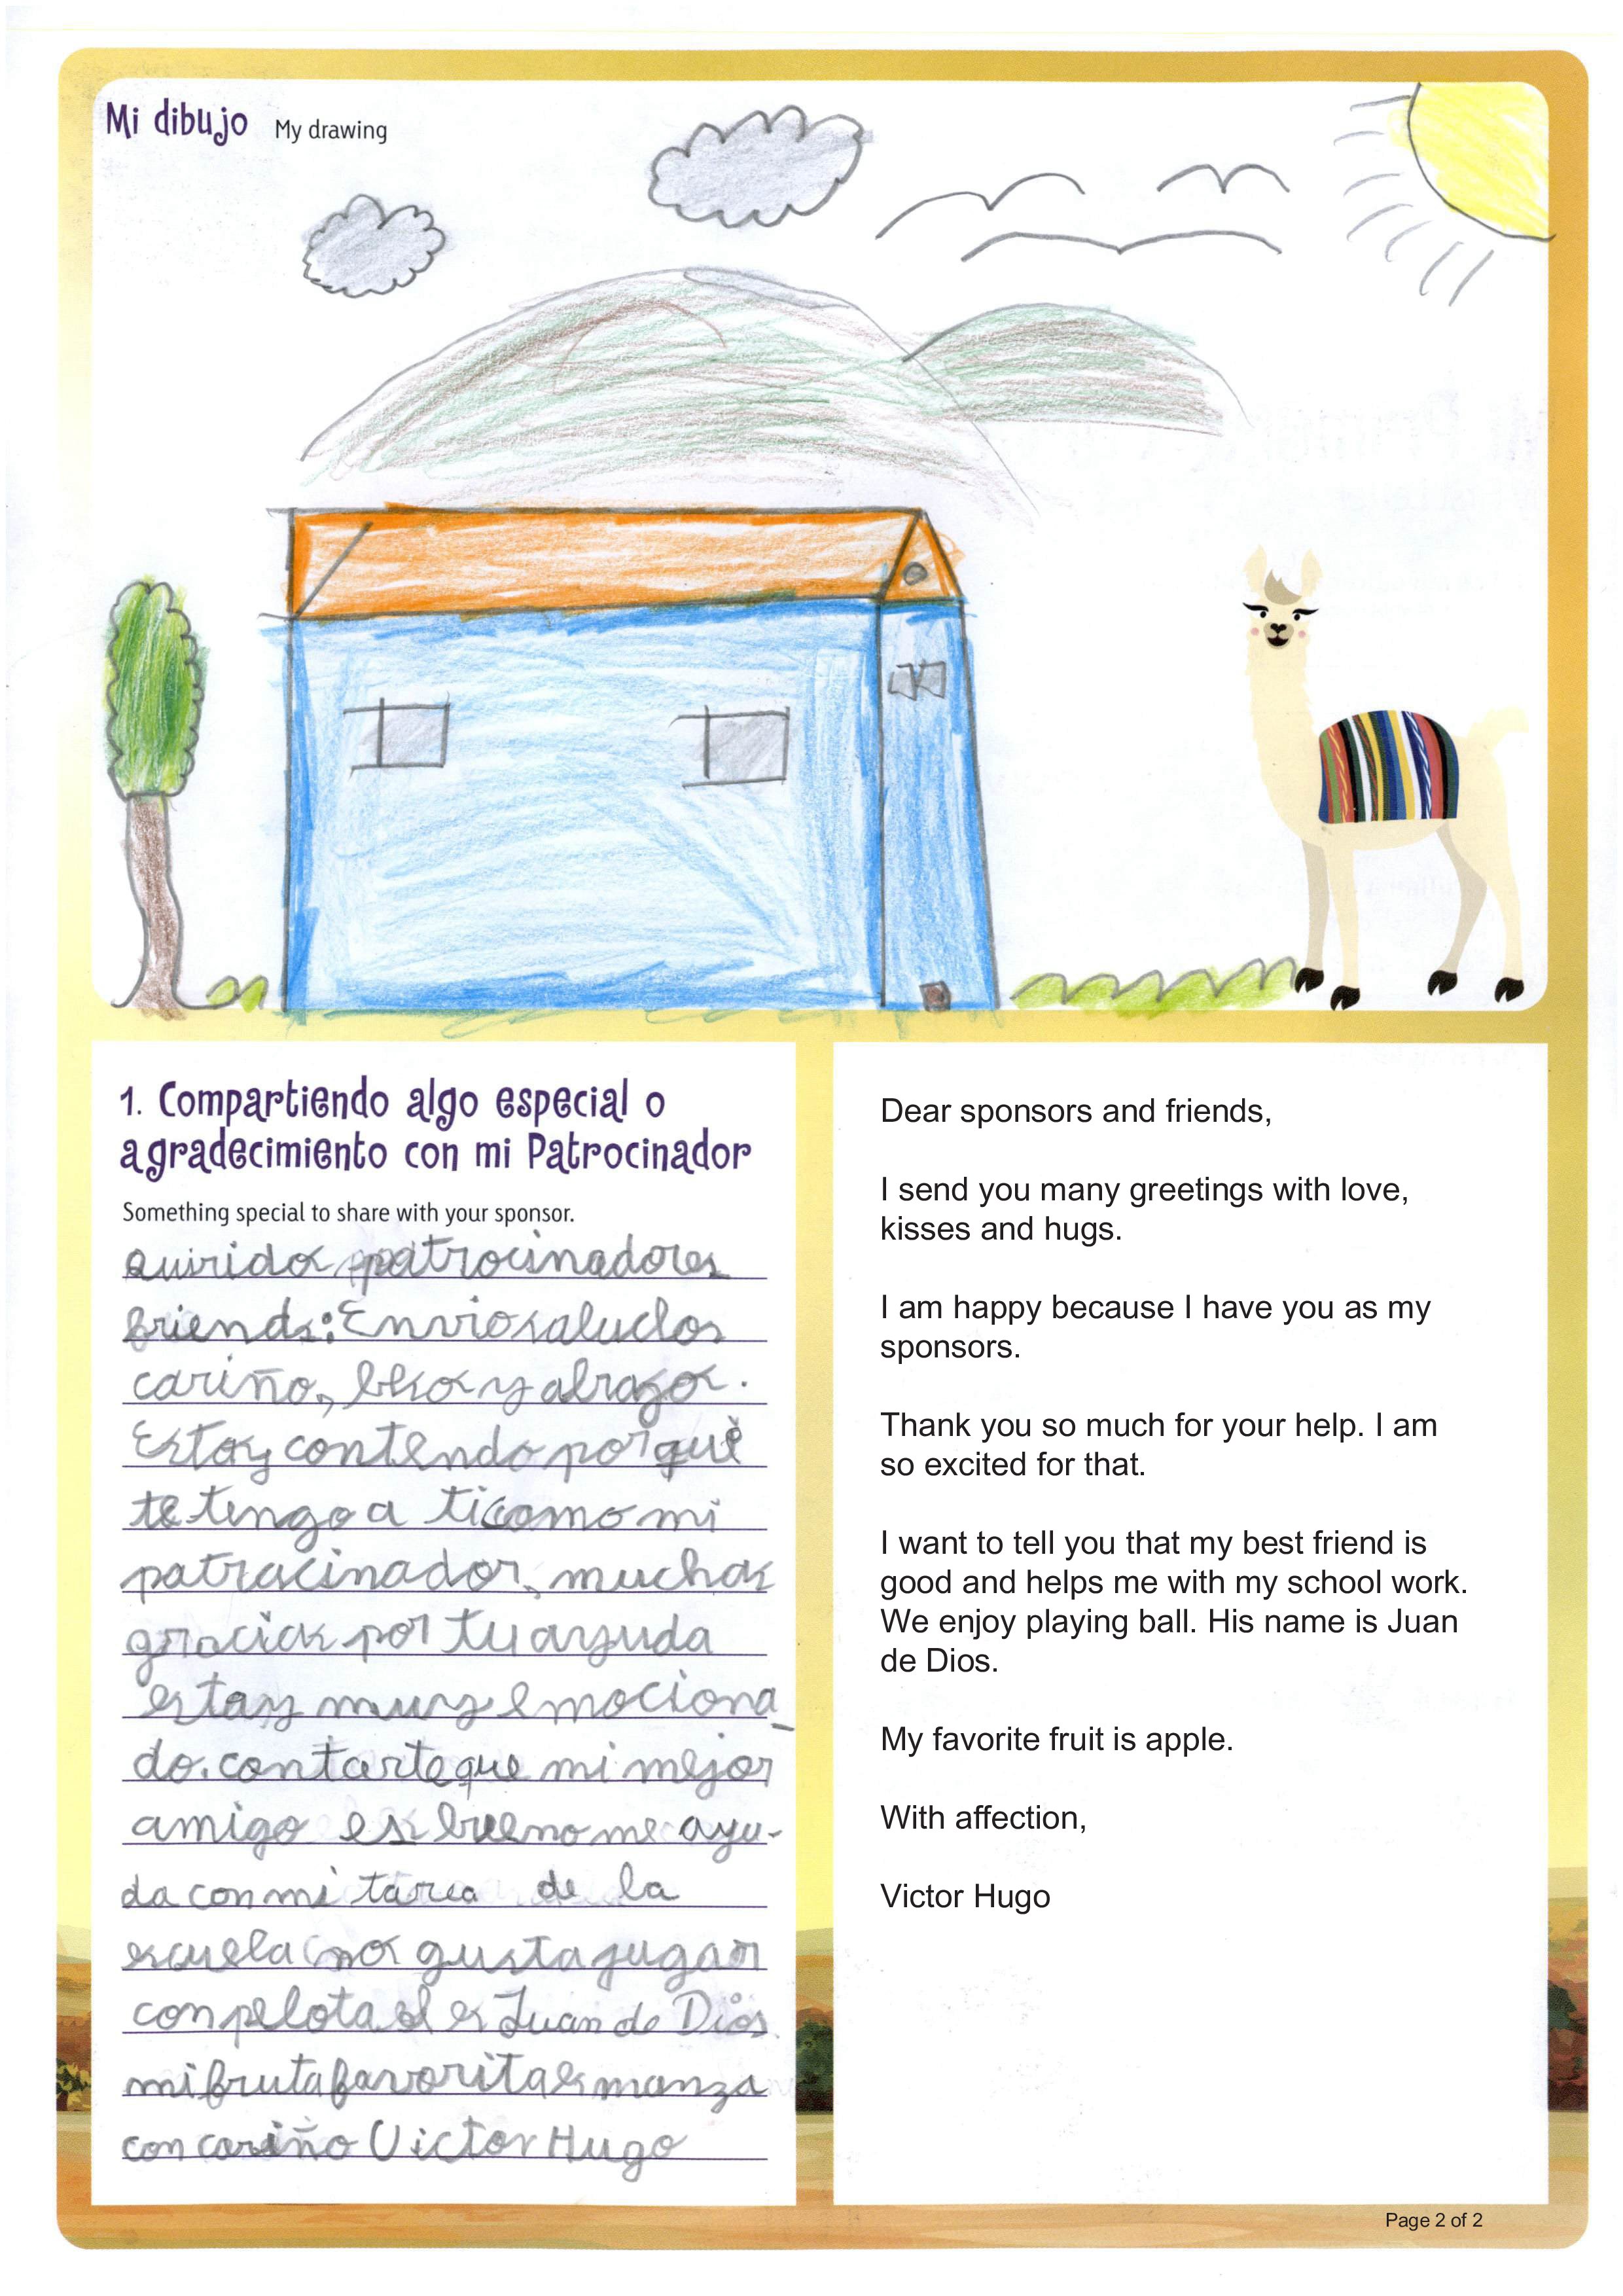 Mi dibujo My drawing
1. Compartiendo algo especial o
agradecimiento con mi Patrocinador
Something special to share with your sponsor.
Quiridos patrocinadores
friends: Envio saludos
cariño, besos y abrazos.
Estoy contendo porqué
te tengo a ti como mi
patracinador, muchas
gracias por tu ayuda
estay muy emociona-
do. contarte que mi mejor
amigo es bueno me ayu-
da con mi tarea de la
escuela nos gusta jugar
con pelota el es Juan de Dios
mi fruta favorita es manza
con cariño Victor Hugo
Dear sponsors and friends,
I send you many greetings with love,
kisses and hugs.
I am happy because I have you as my
sponsors.
Thank you so much for your help. I am
so excited for that.
I want to tell you that my best friend is
good and helps me with my school work.
We enjoy playing ball. His name is Juan
de Dios.
My favorite fruit is apple.
With affection,
Victor Hugo
Page 2 of 2